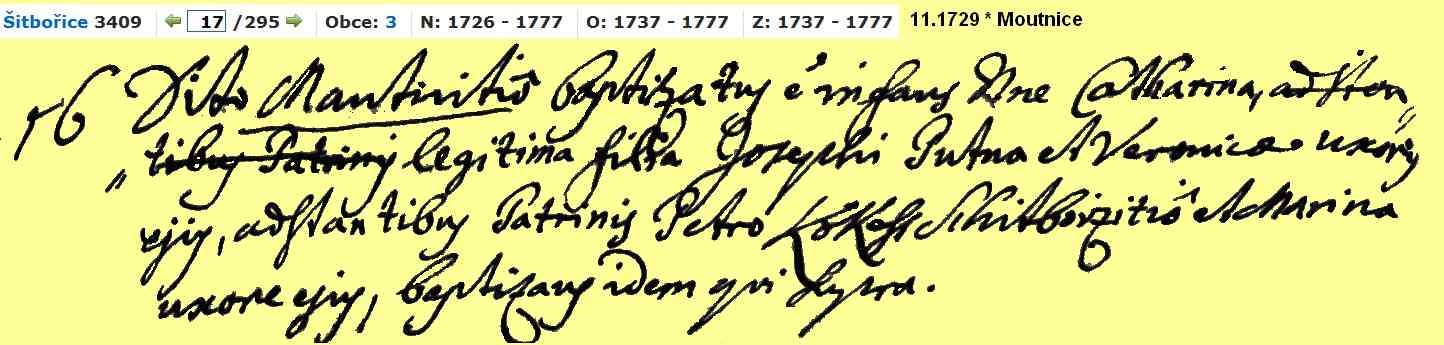 Šitbořice 3409 17 /295 Obce: 3 N: 1726 - 1777 O: 1737 - 1777 Z: 1737 - 1777 11.1729 * Moutnice
16 Dito Mautinitiis baptizatus e infans Nne Catharina, adstan
tibus Patrinis legitima filia Josephi Putna et Veronicae uxoris
ejus, adstantibus Patrinis Petro Schitborzitiis et Marina
uxore ejus, baptizans idem qui supra.